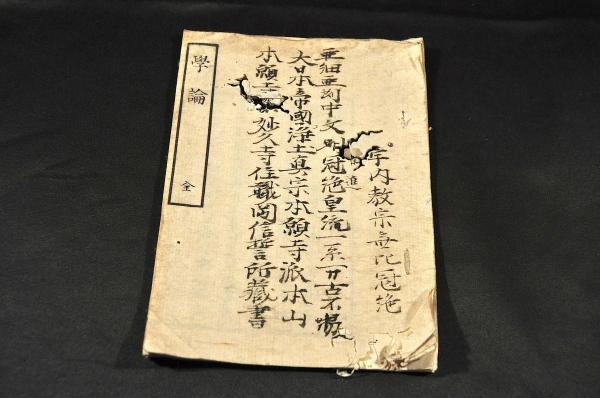 宇内教宗無比冠絶
亜細亜 中文明冠絶皇統一系万古不
進
大日本帝國浄土真宗本願寺派本山
本願寺 妙久寺住職岡信誓所藏書
學論
全